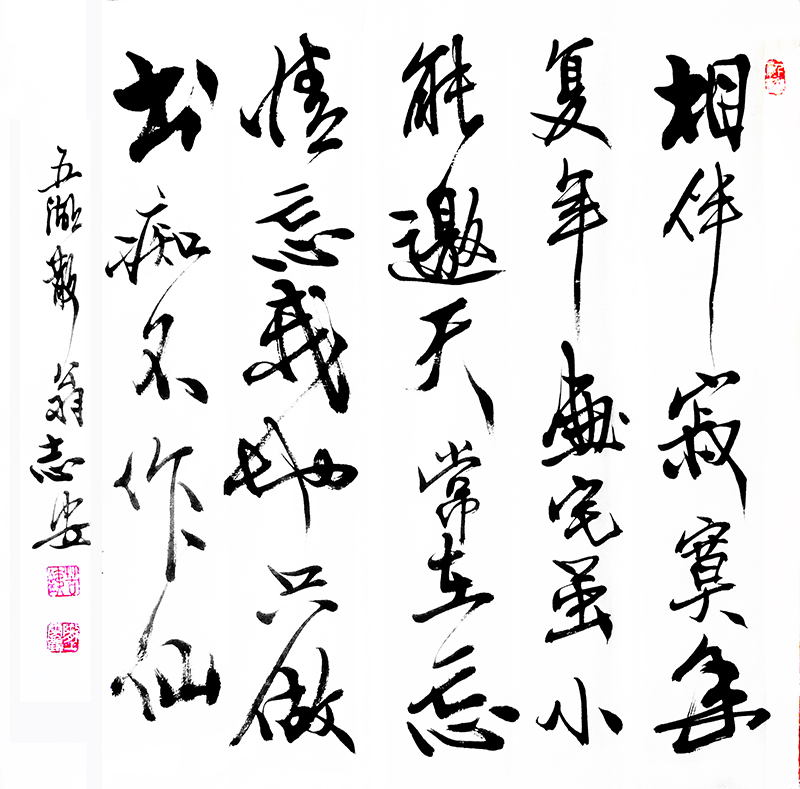 相伴寂寞年
复年宅虽小
能邀天常在忘
情忘我地只做
书痴不作仙
五湖散翁志安